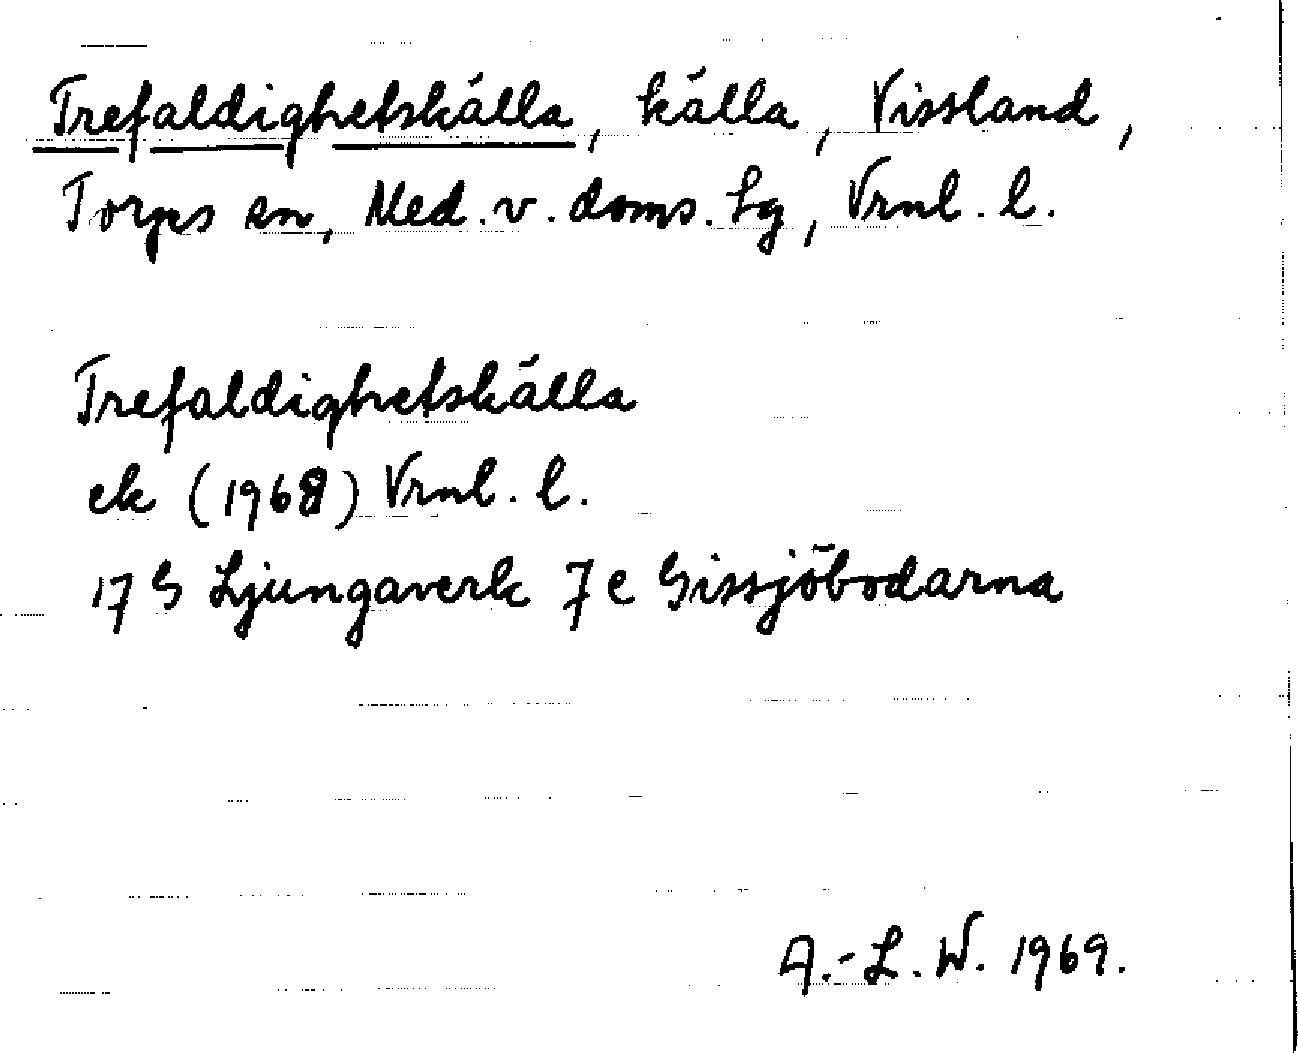 Trefaldighetskälla, källa, Vissland,
Torps sn, Med. v. doms. lg, Vrnl. l.
Trefaldighetskälla
ek (1968) Vrnl. l.
17 G Ljungaverk 7 e Gissjöbodarna
A.-L. W. 1969.